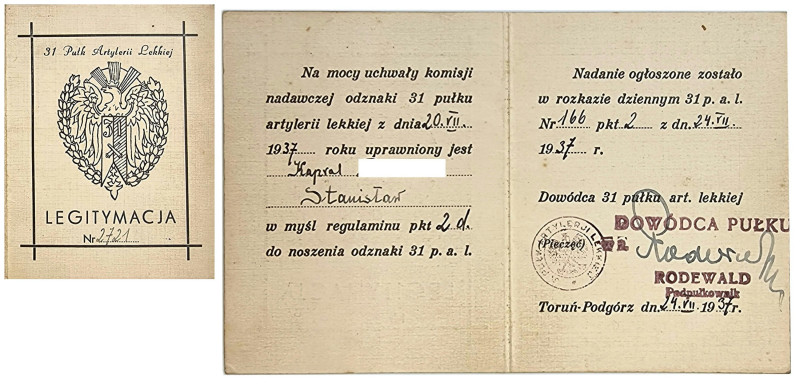 31 Pułk Artylerii Lekkiej
LEGITYMACJA
Nr 2721
Na mocy uchwały komisji
nadawczej odznaki 31 pułku
artylerii lekkiej z dnia 20.VII.
1937 roku uprawniony jest
Kapral
Stanisław
w myśl regulaminu pkt 2 d.
do noszenia odznaki 31 p. a. l.
Nadanie ogłoszone zostało
w rozkazie dziennym 31 p. a. l.
Nr 166 pkt 2 z dn. 24.VII.
1937 r.
Dowódca 31 pułku art. lekkiej
DOWÓDCA PUŁKU
(Pieczęć)
RODEWALD
Podpułkownik
Toruń-Podgórz dn. 24.VII 1937r.